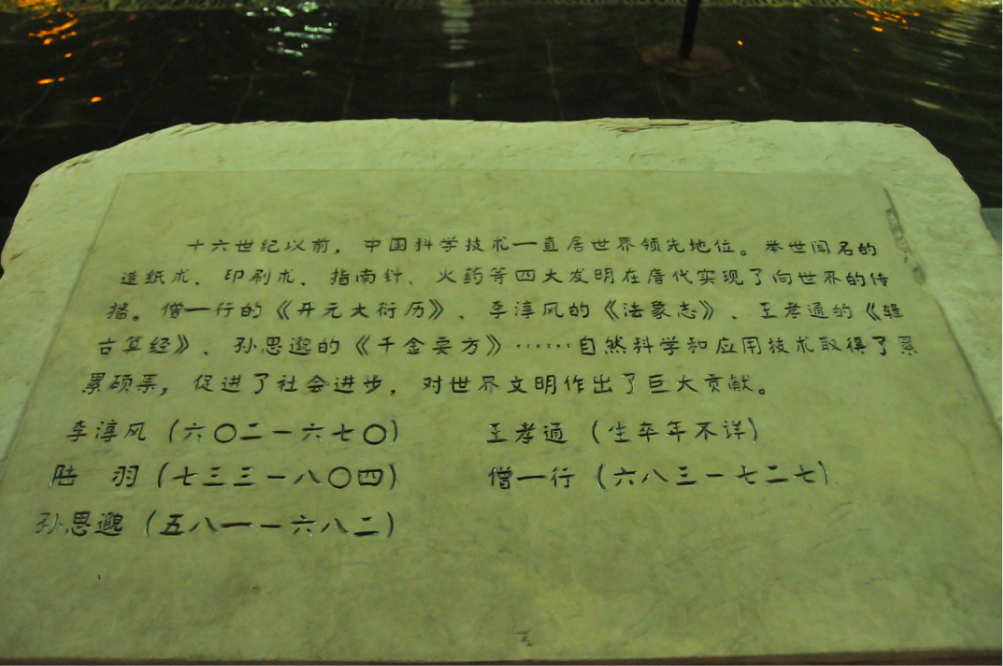 十六世纪以前，中国科学技术一直居世界领先地位。举世闻名的
造纸术、印刷术、指南针、火药等四大发明在唐代实现了向世界的传
播。僧一行的《开元大衍历》、李淳风的《法象志》、王孝通的《辑
古算经》、孙思邈的《千金要方》……自然科学和应用技术取得了累
累硕果，促进了社会进步，对世界文明作出了巨大贡献。
李淳风（六〇二－六七〇） 王孝通（生卒年不详）
陆 羽（七三三－八〇四） 僧一行（六八三－七二七）
孙思邈（五八一－六八二）